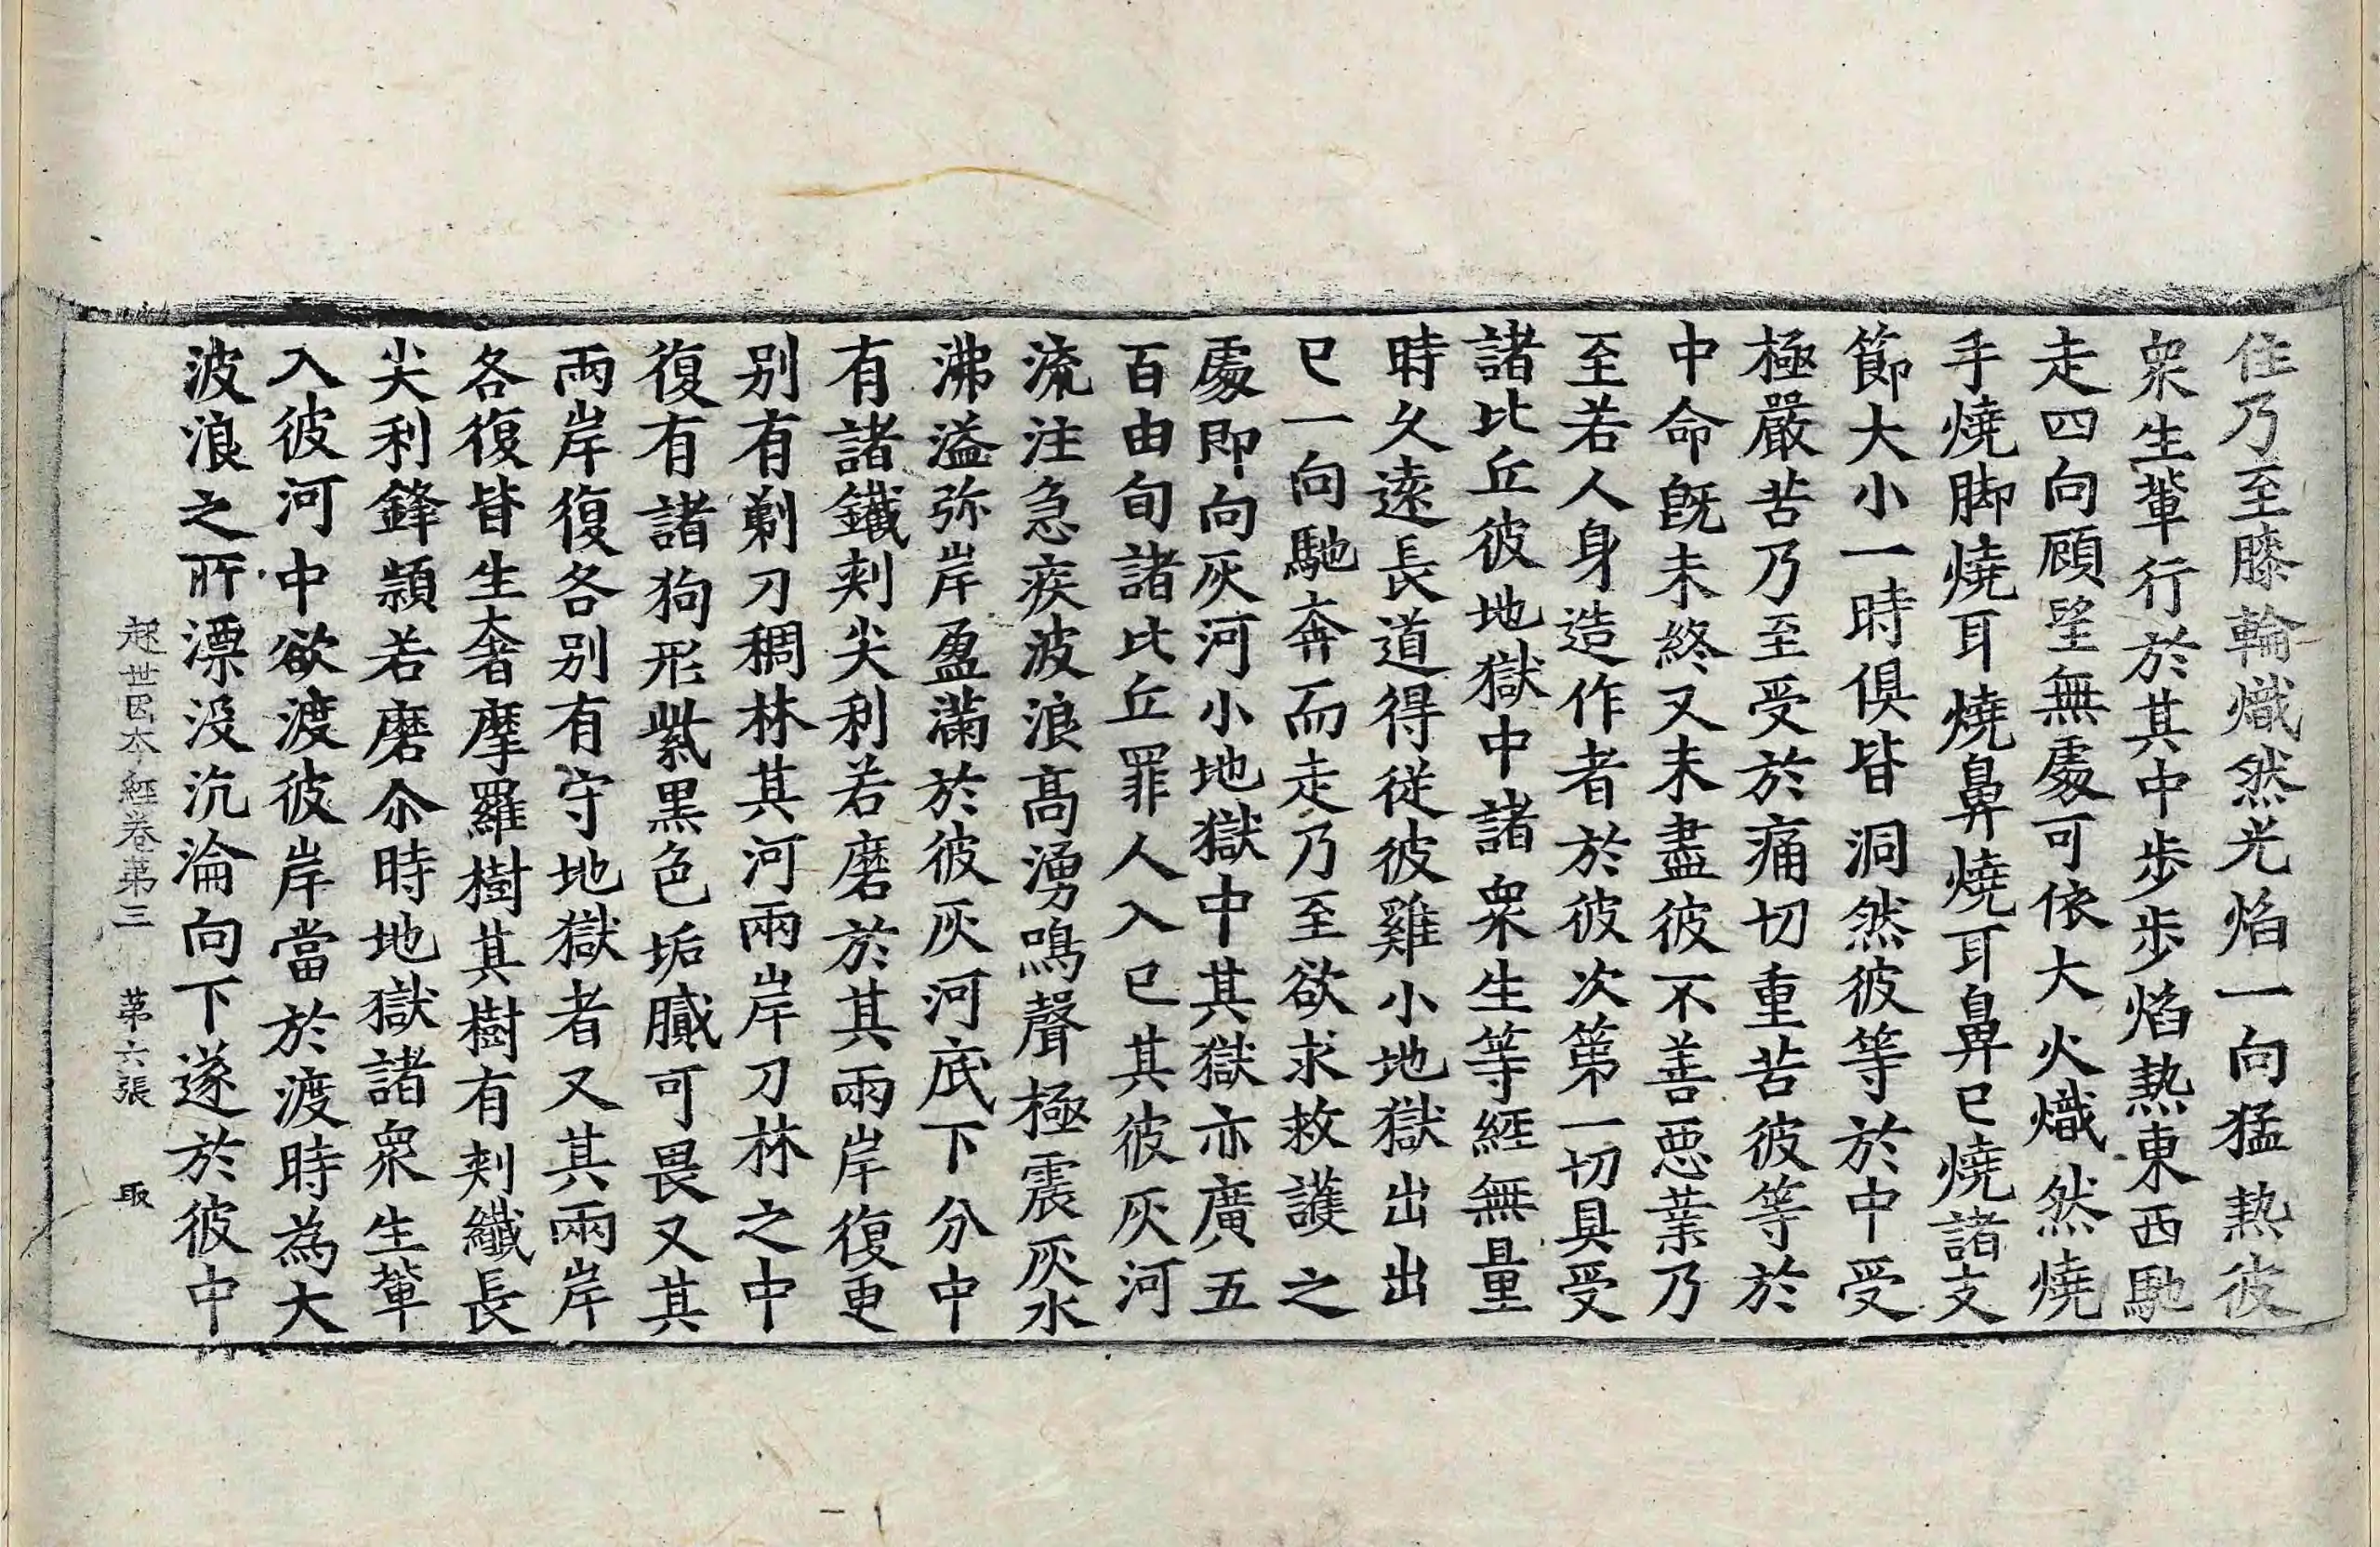 住乃至膝輪熾然光焰一向猛熱彼
衆生軰行於其中步步焰熱東西馳
走四向顧望無處可依大火熾然燒
手燒脚燒耳燒鼻燒耳鼻已燒諸支
節大小一時俱皆洞然彼等於中受
極嚴苦乃至受於痛切重苦彼等於
中命旣未終又未盡彼不善惡業乃
至若人身造作者於彼次第一切具受
諸比丘彼地獄中諸衆生等經無量
時久遠長道得從彼雞小地獄出出
已一向馳奔而走乃至欲求救護之
處即向灰河小地獄中其獄亦廣五
百由旬諸比丘罪人入已其彼灰河
流注急疾波浪高湧鳴聲極震灰水
沸溢弥岸盈滿於彼灰河底下分中
有諸鐵刺尖利若磨於其兩岸復更
别有剃刀稠林其河兩岸刀林之中
復有諸狗形紫黑色垢膩可畏又其
兩岸復各别有守地獄者又其兩岸
各復皆生奢摩羅樹其樹有刺纖長
尖利鋒頴若磨尒時地獄諸衆生軰
入彼河中欲渡彼岸當於渡時為大
波浪之所漂没沉淪向下遂於彼中
起世因本經卷第三 第六張 取